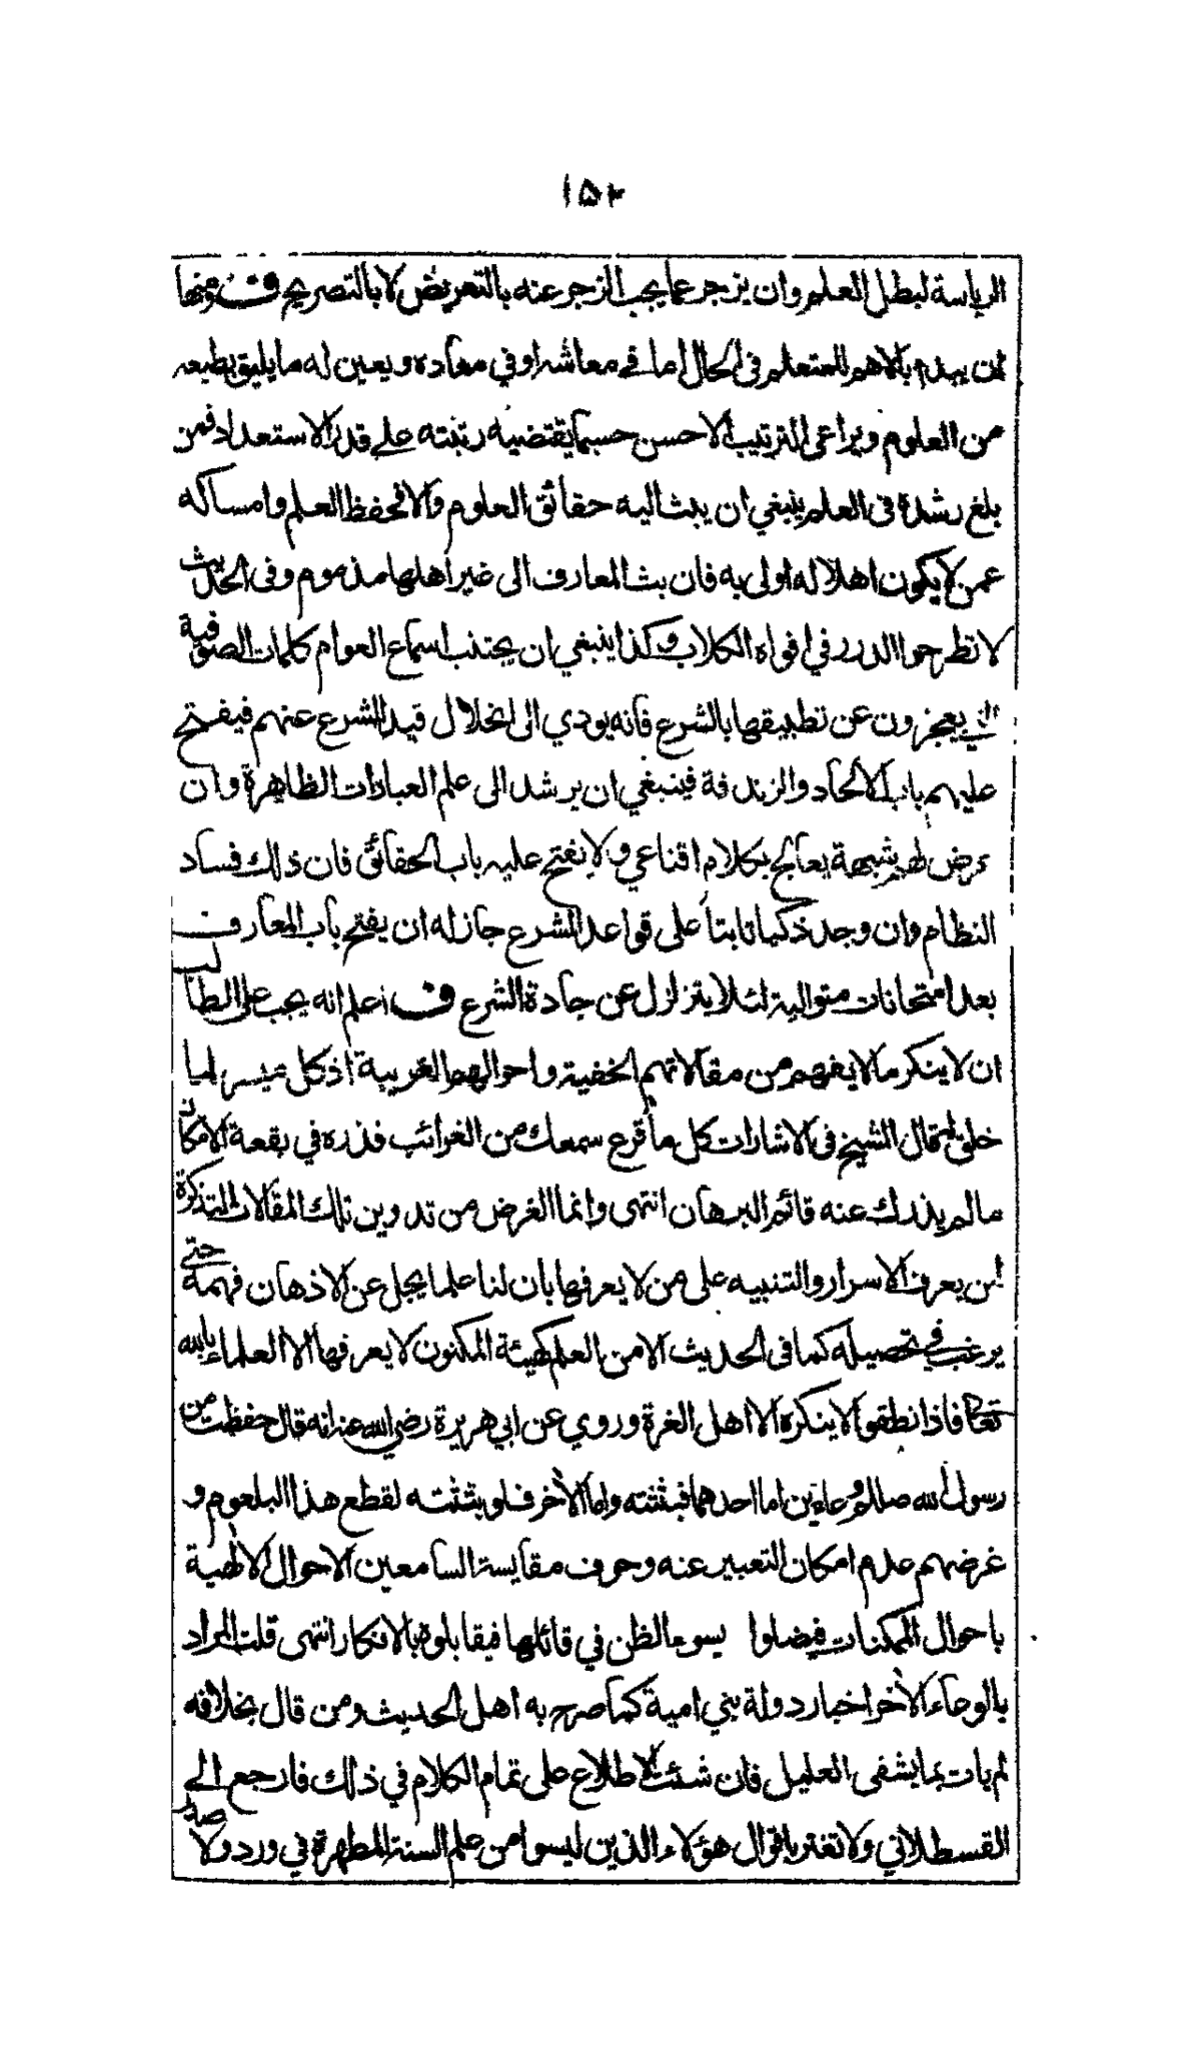 ١٥٢
الرياسة لبطل العلم وان يزجر عما يجب الزجر عنه بالتعريض لا بالتصريح ف ومنها
ان يبدء بالاهم للمتعلم فى الحال اما فى معاشه او في معاده ويعين له ما يليق بطبعه
من العلوم ويراعى الترتيب الاحسن حسبما يقتضيه رتبته على قدر الاستعداد فمن
بلغ رشده فى العلم ينبغي ان يبث اليه حقائق العلوم والا فحفظ العلم وامساكه
عمن لا يكون اهلا له اولى به فان بث المعارف الى غير اهلها مذموم وفى الحديث
لا تطرحوا الدرر في افواه الكلاب وكذا ينبغي ان يجتنب اسماع العوام كلمات الصوفية
التي يعجزون عن تطبيقها بالشرع فانه يودي الى انحلال قيد الشرع عنهم فيفتح
عليهم باب الالحاد والزندقة فينبغي ان يرشد الى علم العبادات الظاهرة وان
عرض لهم شبهة يعالج بكلام اقناعي ولا يفتح عليه باب الحقائق فان ذلك فساد
النظام وان وجد ذكيا ثابتا على قواعد الشرع جاز له ان يفتح باب المعارف
بعد امتحانات متوالية لئلا يتزلزل عن جادة الشرع ف اعلم انه يجب على الطالب
ان لا ينكر ما لا يفهم من مقالاتهم الخفية واحوالهم الغريبة اذ كل ميسر لما
خلق له قال الشيخ فى الاشارات كل ما قرع سمعك من الغرائب فذره في بقعة الامكان
ما لم يذدك عنه قائم البرهان انتهى وانما الغرض من تدوين تلك المقالات التذكرة
لمن يعرف الاسرار والتنبيه على من لا يعرفها بان لنا علما يجل عن الاذهان فهمه حتى
يرغب في تحصيله كما فى الحديث الا من العلم كهيئة المكنون لا يعرفها الا العلماء بالله
تعالى فاذا نطقوا لا ينكره الا اهل الغرة وروي عن ابي هريرة رضي الله عنه انه قال حفظت من
رسول الله صللم وعاءين اما احدهما فبثثته واما الاخر فلو بثثته لقطع هذا البلعوم و
غرضهم عدم امكان التعبير عنه وخوف مقايسة السامعين الاحوال الالهية
باحوال الممكنات فيضلوا يسوء الظن في قائلها فيقابلوه بالانكار انتهى قلت المراد
بالوعاء الاخر اخبار دولة بني امية كما صرح به اهل الحديث ومن قال بخلافه
لم يات بما يشفى العليل فان شئت الاطلاع على تمام الكلام في ذلك فارجع الى
القسطلاني ولا تغتر باقوال هؤلاء الذين ليسوا من علم السنة المطهرة في ورد ولا صدر